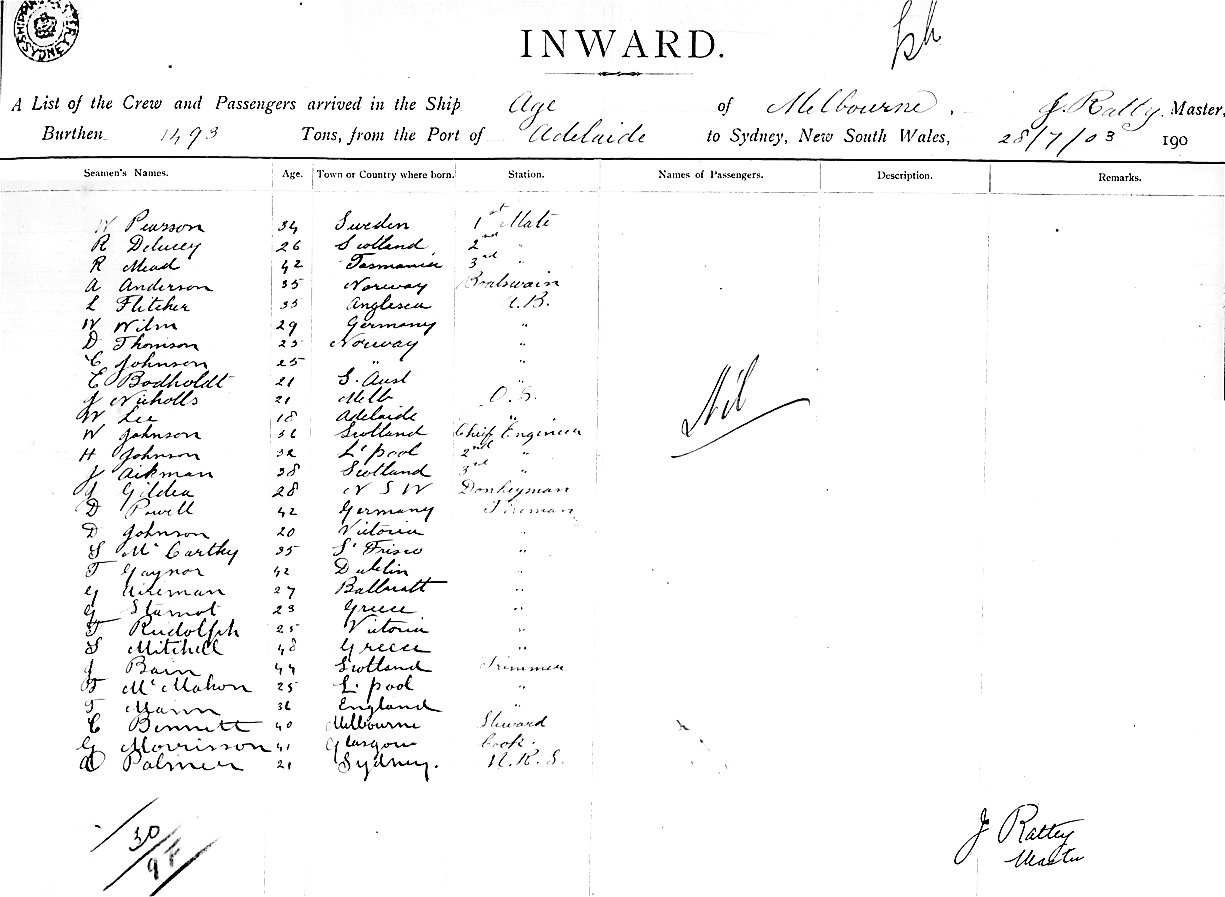 SHIPPING SYDNEY
INWARD.
A List of the Crew and Passengers arrived in the Ship Age of Melbourne, J. Rattey Master,
Burthen 1493 Tons, from the Port of Adelaide to Sydney, New South Wales, 28/7/03 190
Seamen's Names. Age. Town or Country where born. Station. Names of Passengers. Description. Remarks.
W Pearson 34 Sweden 1st Mate
R Delucey 26 Scotland 2nd "
R Mead 42 Tasmania 3rd "
A Anderson 35 Norway Boatswain
L Fletcher 35 Anglesea A.B.
W Wilm 29 Germany "
D Thomson 25 Norway "
C Johnson 25 " "
E Bodholdt 21 S. Aust "
J Nicholls 21 Melb O.S.
W Lee 18 Adelaide "
W Johnson 36 Scotland Chief Engineer
H Johnson 32 L'pool 2nd "
J Aikman 38 Scotland 3rd "
J Gildea 28 N S W Donkeyman
D Powell 42 Germany Fireman
D Johnson 20 Victoria "
S McCarthy 35 S' Frisco "
T Gaynor 42 Dublin "
G 27 Ballaratt "
G Stamot 23 Greece "
F Rudolph 25 Victoria "
S Mitchell 48 Greece "
J Bain 44 Scotland Trimmer
F McMahon 25 L'pool "
T Mann 36 England "
C Bennett 40 Melbourne Steward
G Morrisson 41 Glasgow Cook.
A Palmer 21 Sydney. U.K.S.
Nil
30
9F
J Rattey
Master